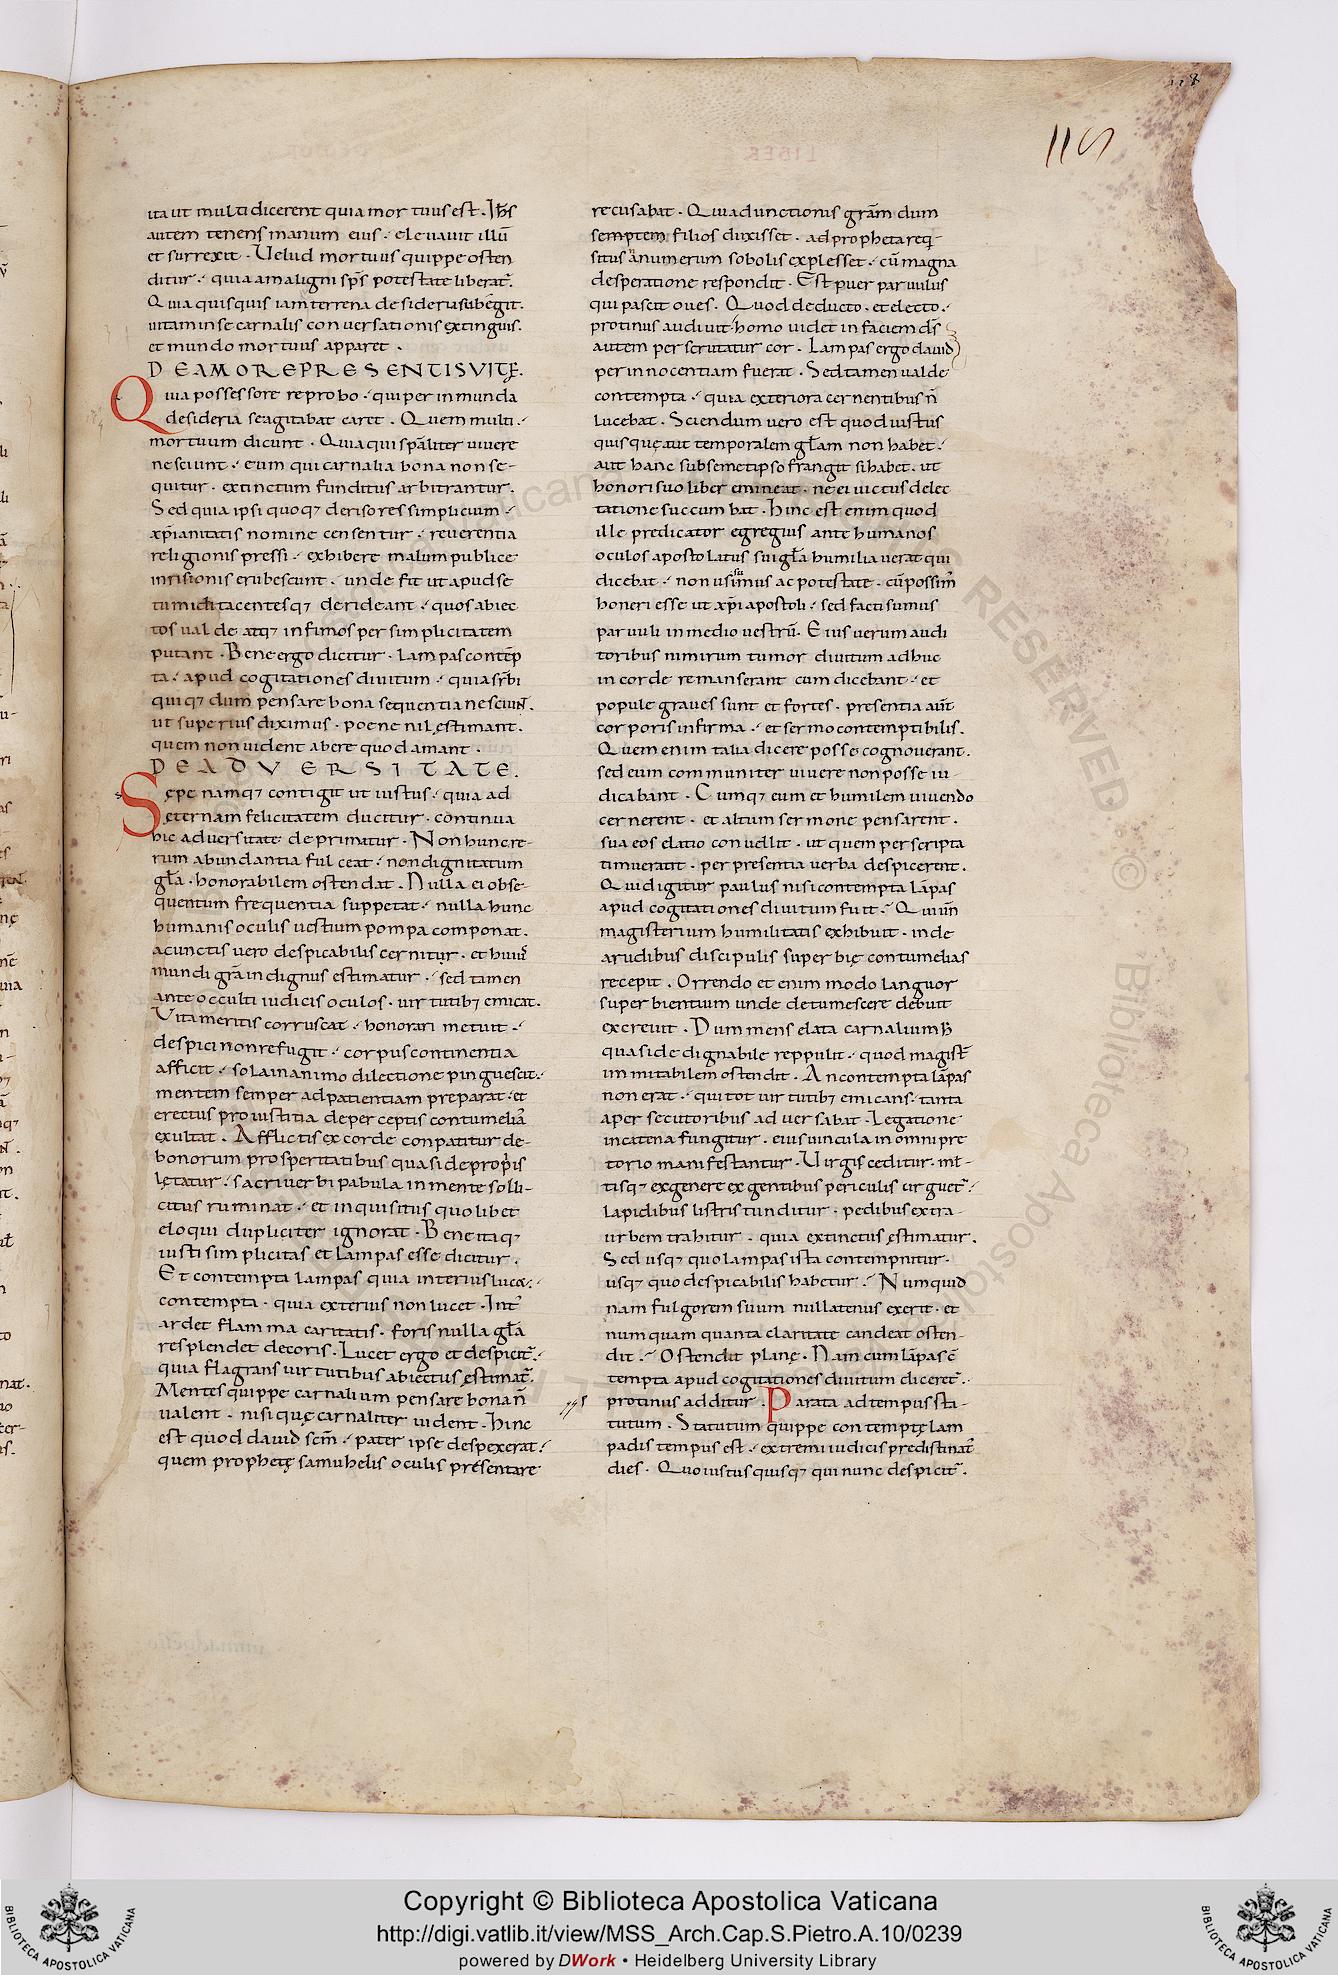 118
118
ita ut multi dicerent quia mortuus est. Ih̅s
autem tenens manum eius. elevavit illū
et surrexit. Velud mortuus quippe osten
ditur. quia a maligni sp̅s potestate liberat᷑.
Quia quisquis iam terrena desideria subegit.
vitam in se carnalis conversationis extinguis.
et mundo mortuus apparet.
DE AMORE PRESENTIS VITĘ.
Quia possessore reprobo. qui per inmunda
desideria se agitabat caret. Quem multi
mortuum dicunt. Quia qui sp̅aliter vivere
nesciunt. eum qui carnalia bona non se-
quitur. extinctum funditus arbitrantur.
Sed quia ipsi quoq; derisores simplicium
xp̅ianitatis nomine censentur. reverentia
religionis pressi. exhibere malum publice
inrisionis erubescunt. unde fit ut apud se
tumidi tacentesq; derideant. quos abiec
tos valde atq; infimos per simplicitatem
putant. Bene ergo dicitur. lampas contēp
ta. apud cogitationes divitum. quia sr̅bi
quiq; dum pensare bona sequentia nesciunt.
ut superius diximus. poene nil ęstimant.
quem non vident abere quod amant.
DE ADVERSITATE.
Sępe namq; contigit ut iustus. quia ad
ęternam felicitatem ducitur. continua
hic adversitate deprimatur. Non hunc re-
rum abundantia fulceat. non dignitatum
gl̅a. honorabilem ostendat. Nulla ei obse-
quentum frequentia suppetat. nulla hunc
humanis oculis vestium pompa componat.
a cunctis vero despicabilis cernitur. et huiꝰ
mundi gra̅ indignus estimatur. sed tamen
ante occulti iudicis oculos. virtutib; emicat.
Vita meritis corruscat. honorari metuit.
despici non refugit. corpus continentia
afficit. sola in animo dilectione pinguescit.
mentem semper ad patientiam preparat. et
erectus pro iustitia de perceptis contumeliā
exultat. Afflictis ex corde conpatitur de
bonorum prosperitatibus quasi de propriis
lętatur. sacri verbi pabula in mente solli-
citus ruminat. et inquisitus quolibet
eloqui dupliciter ignorat. Bene itaq;
iusti simplicitas et lampas esse dicitur.
Et contempta lampas quia interius lucet.
contempta. quia exterius non lucet. Int᷑
ardet flamma caritatis. foris nulla gl̅a
resplendet decoris. Lucet ergo et despicit᷑.
quia flagrans virtutibus abiectus ęstimat᷑.
Mentes quippe carnalium pensare bona n̅
valent. nisi quę carnaliter vident. Hinc
est quod david sc̅m. pater ipse despexerat.
quem prophetę samuhelis oculis presentare
recusabat. Qui ad unctionis gra̅m dum
septem filios duxisset. ad propheta req-
situs an numerum sobolis explesset. cū magna
desperatione respondit. Est puer parvulus
qui pascit oves. Quod deducto. et electo.
protinus audivit. homo videt in faciem ds̅
autem perscrutatur cor. Lampas ergo david
per innocentiam fuerat. Sed tamen valde
contempta. quia exteriora cernentibus n̅
lucebat. Sciendum vero est quod iustus
quisque aut temporalem gl̅am non habet.
aut hanc sub semetipso frangit si habet. ut
honori suo liber emineat. ne ei victus delec
tatione succumbat. Hinc est enim quod
ille predicator egregius ante humanos
oculos apostolatus sui gl̅a humiliaverat qui
dicebat. non usi sumus ac potestate. cū possim᷑
honeri esse ut xp̅i apostoli. sed facti sumus
parvuli in medio vestrū. Eius verum audi
toribus nimirum tumor divitum adhuc
in corde remanserant cum dicebant. et
popule graves sunt et fortes. presentia aut̅
corporis infirma. et sermo contemptibilis.
Quem enim talia dicere posse cognoverant.
sed eum communiter vivere non posse iu-
dicabant. Cumq; eum et humilem vivendo
cernerent. et altum sermone pensarent.
sua eos elatio convellit. ut quem per scripta
timuerant. per presentia verba despicerent.
Quid igitur paulus nisi contempta lāpas
apud cogitationes divitum fuit. Qui un̅
magisterium humilitatis exhibuit. inde
a rudibus discipulis superbię contumelias
recepit. Orrendo etenim modo languor
superbientium unde detumescere debuit
excrevit. Dum mens elata carnalium h̅
quasi dedignabile reppulit. quod magist᷑
immitabilem ostendit. An contempta lāpas
non erat. qui tot virtutib; emicans. tanta
a persecutoribus adversabat. Legatione
in catena fungitur. eius vincula in omni pre
torio manifestantur. Virgis ceditur. mł-
tisq; ex genere ex gentibus periculis urguet᷑.
lapidibus listris tunditur. pedibus extra-
urbem trahitur. quia extinctus ęstimatur.
Sed usq; quo lampas ista contempnitur.
usq; quo despicabilis habetur. Numquid
nam fulgorem suum nullatenus exerit. et
numquam quanta claritate candeat osten-
dit. Ostendit planę. Nam cum lāpas cō
tempta apud cogitationes divitum diceret᷑.
protinus additur. Parata ad tempus sta-
tutum. Statutum quippe contemptę lam
padis tempus est. extremi iudicis predistinat᷑
dies. Quo iustus quisq; qui nunc despicit᷑.
Copyright © Biblioteca Apostolica Vaticana
http://digi.vatlib.it/view/MSS_Arch.Cap.S.Pietro.A.10/0239
powered by DWork • Heidelberg University Library
BIBLIOTECA APOSTOLICA VATICANA
BIBLIOTECA APOSTOLICA VATICANA